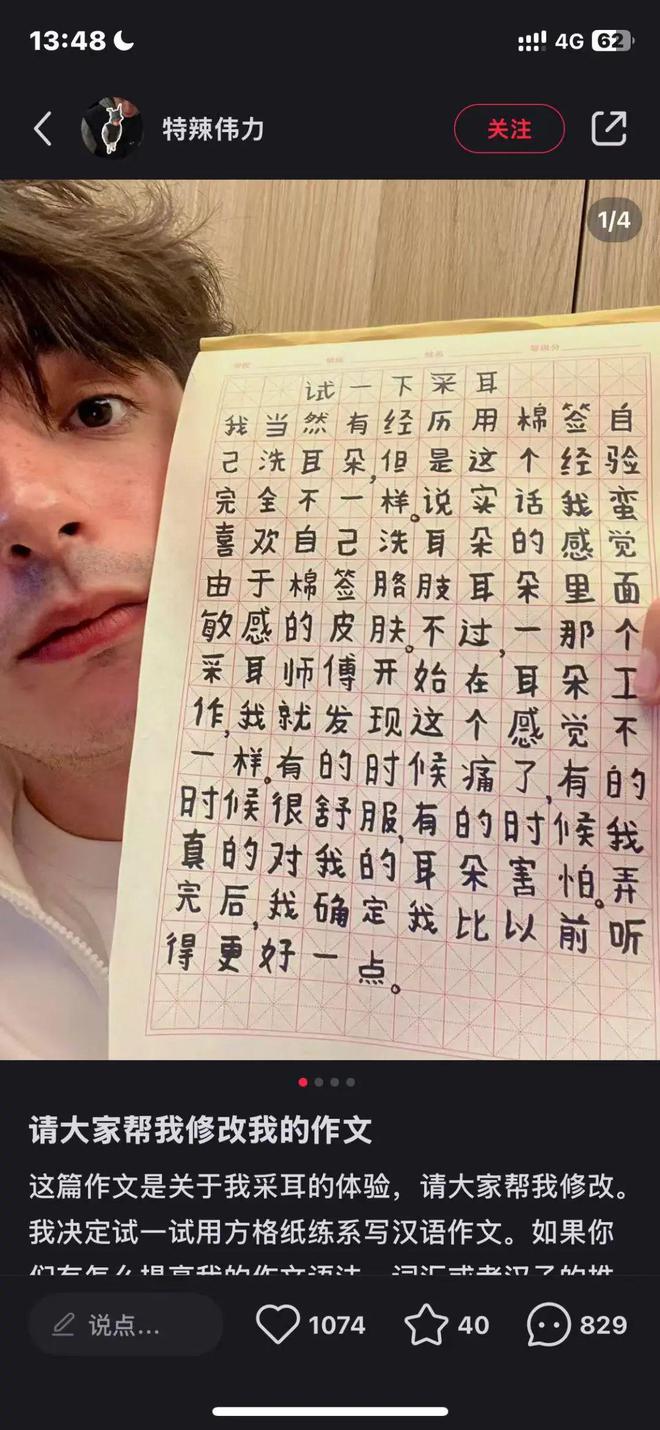 13:48
4G 62
特辣伟力
关注
1/4
试一下采耳
我当然有经历用棉签自
己洗耳朵,但是这个经验
完全不一样。说实话我蛮
喜欢自己洗耳朵的感觉
由于棉签胳肢耳朵里面
敏感的皮肤。不过,一那个
采耳师傅开始在耳朵工
作,我就发现这个感觉不
一样。有的时候痛了,有的
时候很舒服,有的时候我
真的对我的耳朵害怕。弄
完后,我确定我比以前听
得更好一点。
请大家帮我修改我的作文
这篇作文是关于我采耳的体验，请大家帮我修改。
我决定试一试用方格纸练系写汉语作文。如果你
们有怎么提高我的作文语法、词汇或者汉子的推
说点...
1074
40
829